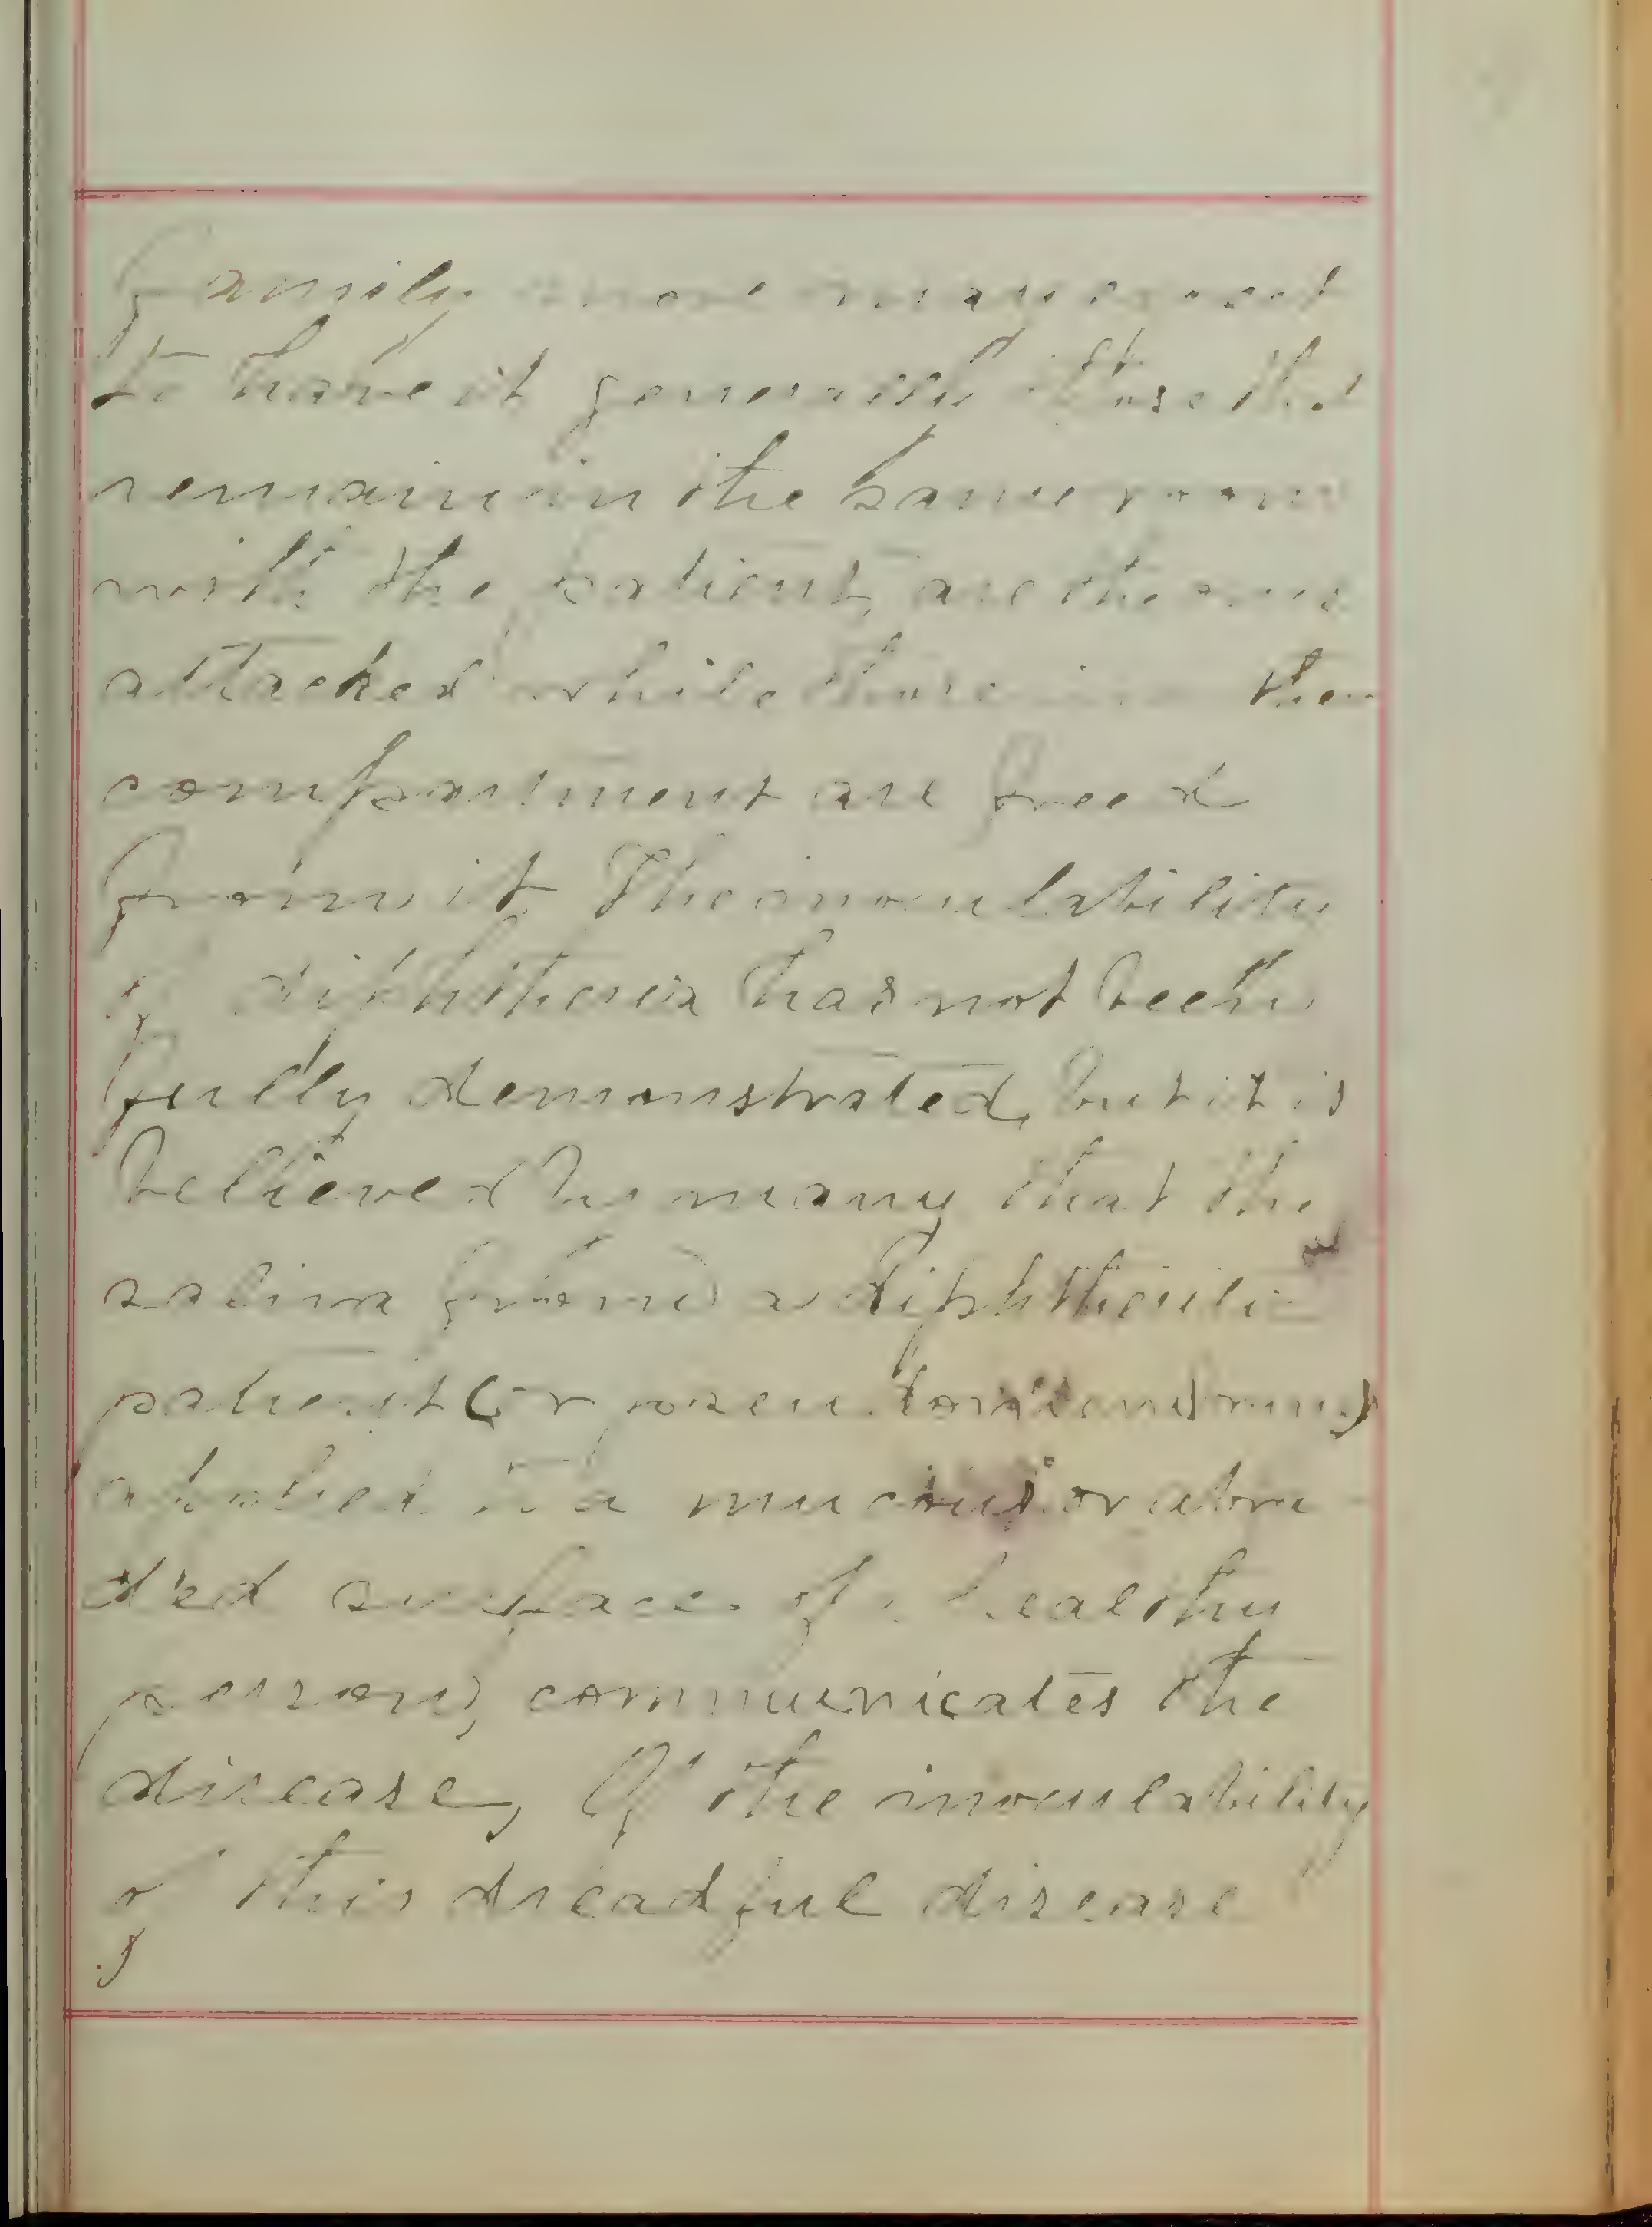 family more may expect
to have it generally those that
remain in the same room
with the patient, are the ones
attacked while those in
compartment are freed
from it. The inoculability
of diphtheria has not been
fully demonstrated, but it is
believed by many that the
saliva from a diphtheritic
patient (or
applied to a mucous or abra
ded surface of a healthy
person, communicates the
disease, Of the inoculability
of this dreadful disease